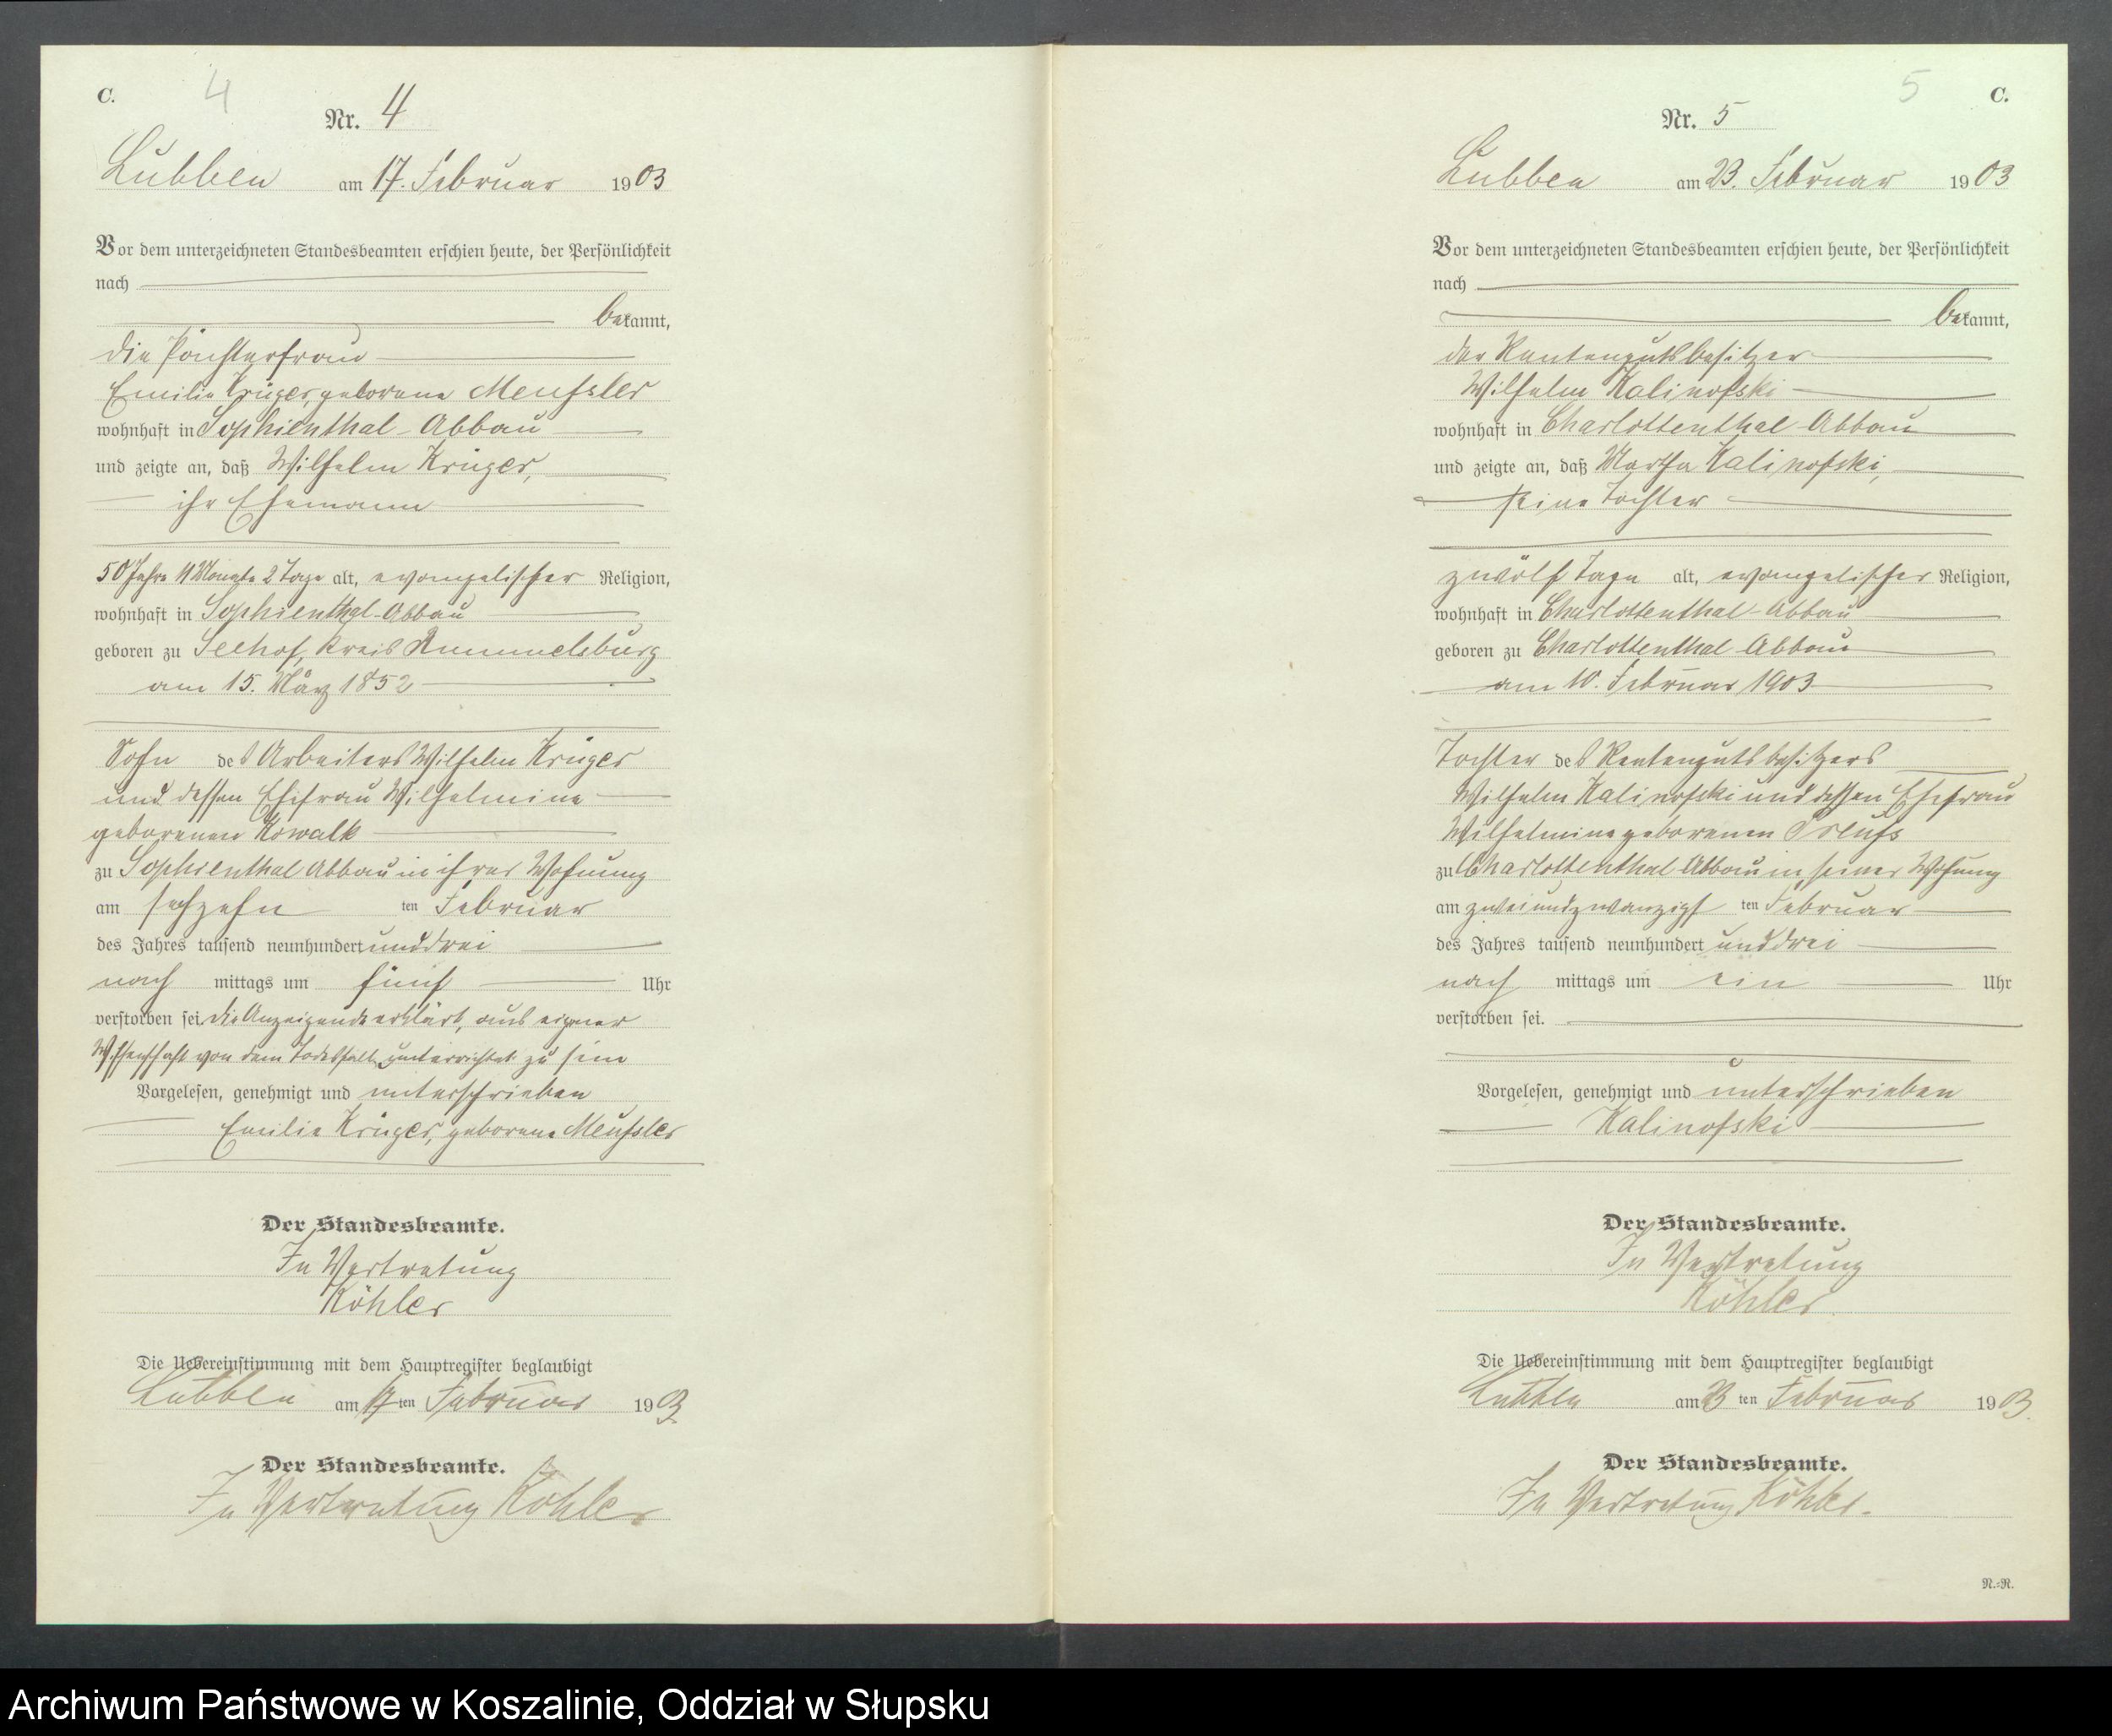 C.
4
Nr. 4
Lübben am 17. Februar 1903
Vor dem unterzeichneten Standesbeamten erschien heute, der Persönlichkeit
nach
bekannt,
die Pächterfrau
Emilie Krüger, geborene Meußler
wohnhaft in Sophienthal-Abbau
und zeigte an, daß Wilhelm Krüger,
ihr Ehemann
50 Jahre 11 Monate 2 Tage alt, evangelischer Religion,
wohnhaft in Sophienthal-Abbau
geboren zu Seehof, Kreis Rummelsburg
am 15. März 1852
Sohn des Arbeiters Wilhelm Krüger
und dessen Ehefrau Wilhelmine
geborenen Kowalk
zu Sophienthal Abbau in ihrer Wohnung
am sechzehn ten Februar
des Jahres tausend neunhundert und drei
nach mittags um fünf Uhr
verstorben sei. Die Anzeigende erklärt, aus eigener
Wissenschaft von dem Todesfalle unterrichtet zu sein
Vorgelesen, genehmigt und unterschrieben
Emilie Krüger, geborene Meußler
Der Standesbeamte.
In Vertretung
Köhler
Die Uebereinstimmung mit dem Hauptregister beglaubigt
Lübben am 17 ten Februar 1903.
Der Standesbeamte.
In Vertretung Köhler
5
C.
Nr. 5
Lübben am 23. Februar 1903
Vor dem unterzeichneten Standesbeamten erschien heute, der Persönlichkeit
nach
bekannt,
der Rentengutsbesitzer
Wilhelm Kalinofski
wohnhaft in Charlottenthal Abbau
und zeigte an, daß Martha Kalinofski,
seine Tochter
zwölf Tage alt, evangelischer Religion,
wohnhaft in Charlottenthal-Abbau
geboren zu Charlottenthal Abbau
am 10. Februar 1903
Tochter des Rentengutsbesitzers
Wilhelm Kalinofski und dessen Ehefrau
Wilhelmine geborenen Preuß
zu Charlottenthal Abbau in seiner Wohnung
am zweiundzwanzigsten Februar
des Jahres tausend neunhundert und drei
nach mittags um ein Uhr
verstorben sei.
Vorgelesen, genehmigt und unterschrieben
Kalinofski
Der Standesbeamte.
In Vertretung
Köhler
Die Uebereinstimmung mit dem Hauptregister beglaubigt
Lübben am 23 ten Februar 1903.
Der Standesbeamte.
In Vertretung Köhler.
N.=N.
Archiwum Państwowe w Koszalinie, Oddział w Słupsku